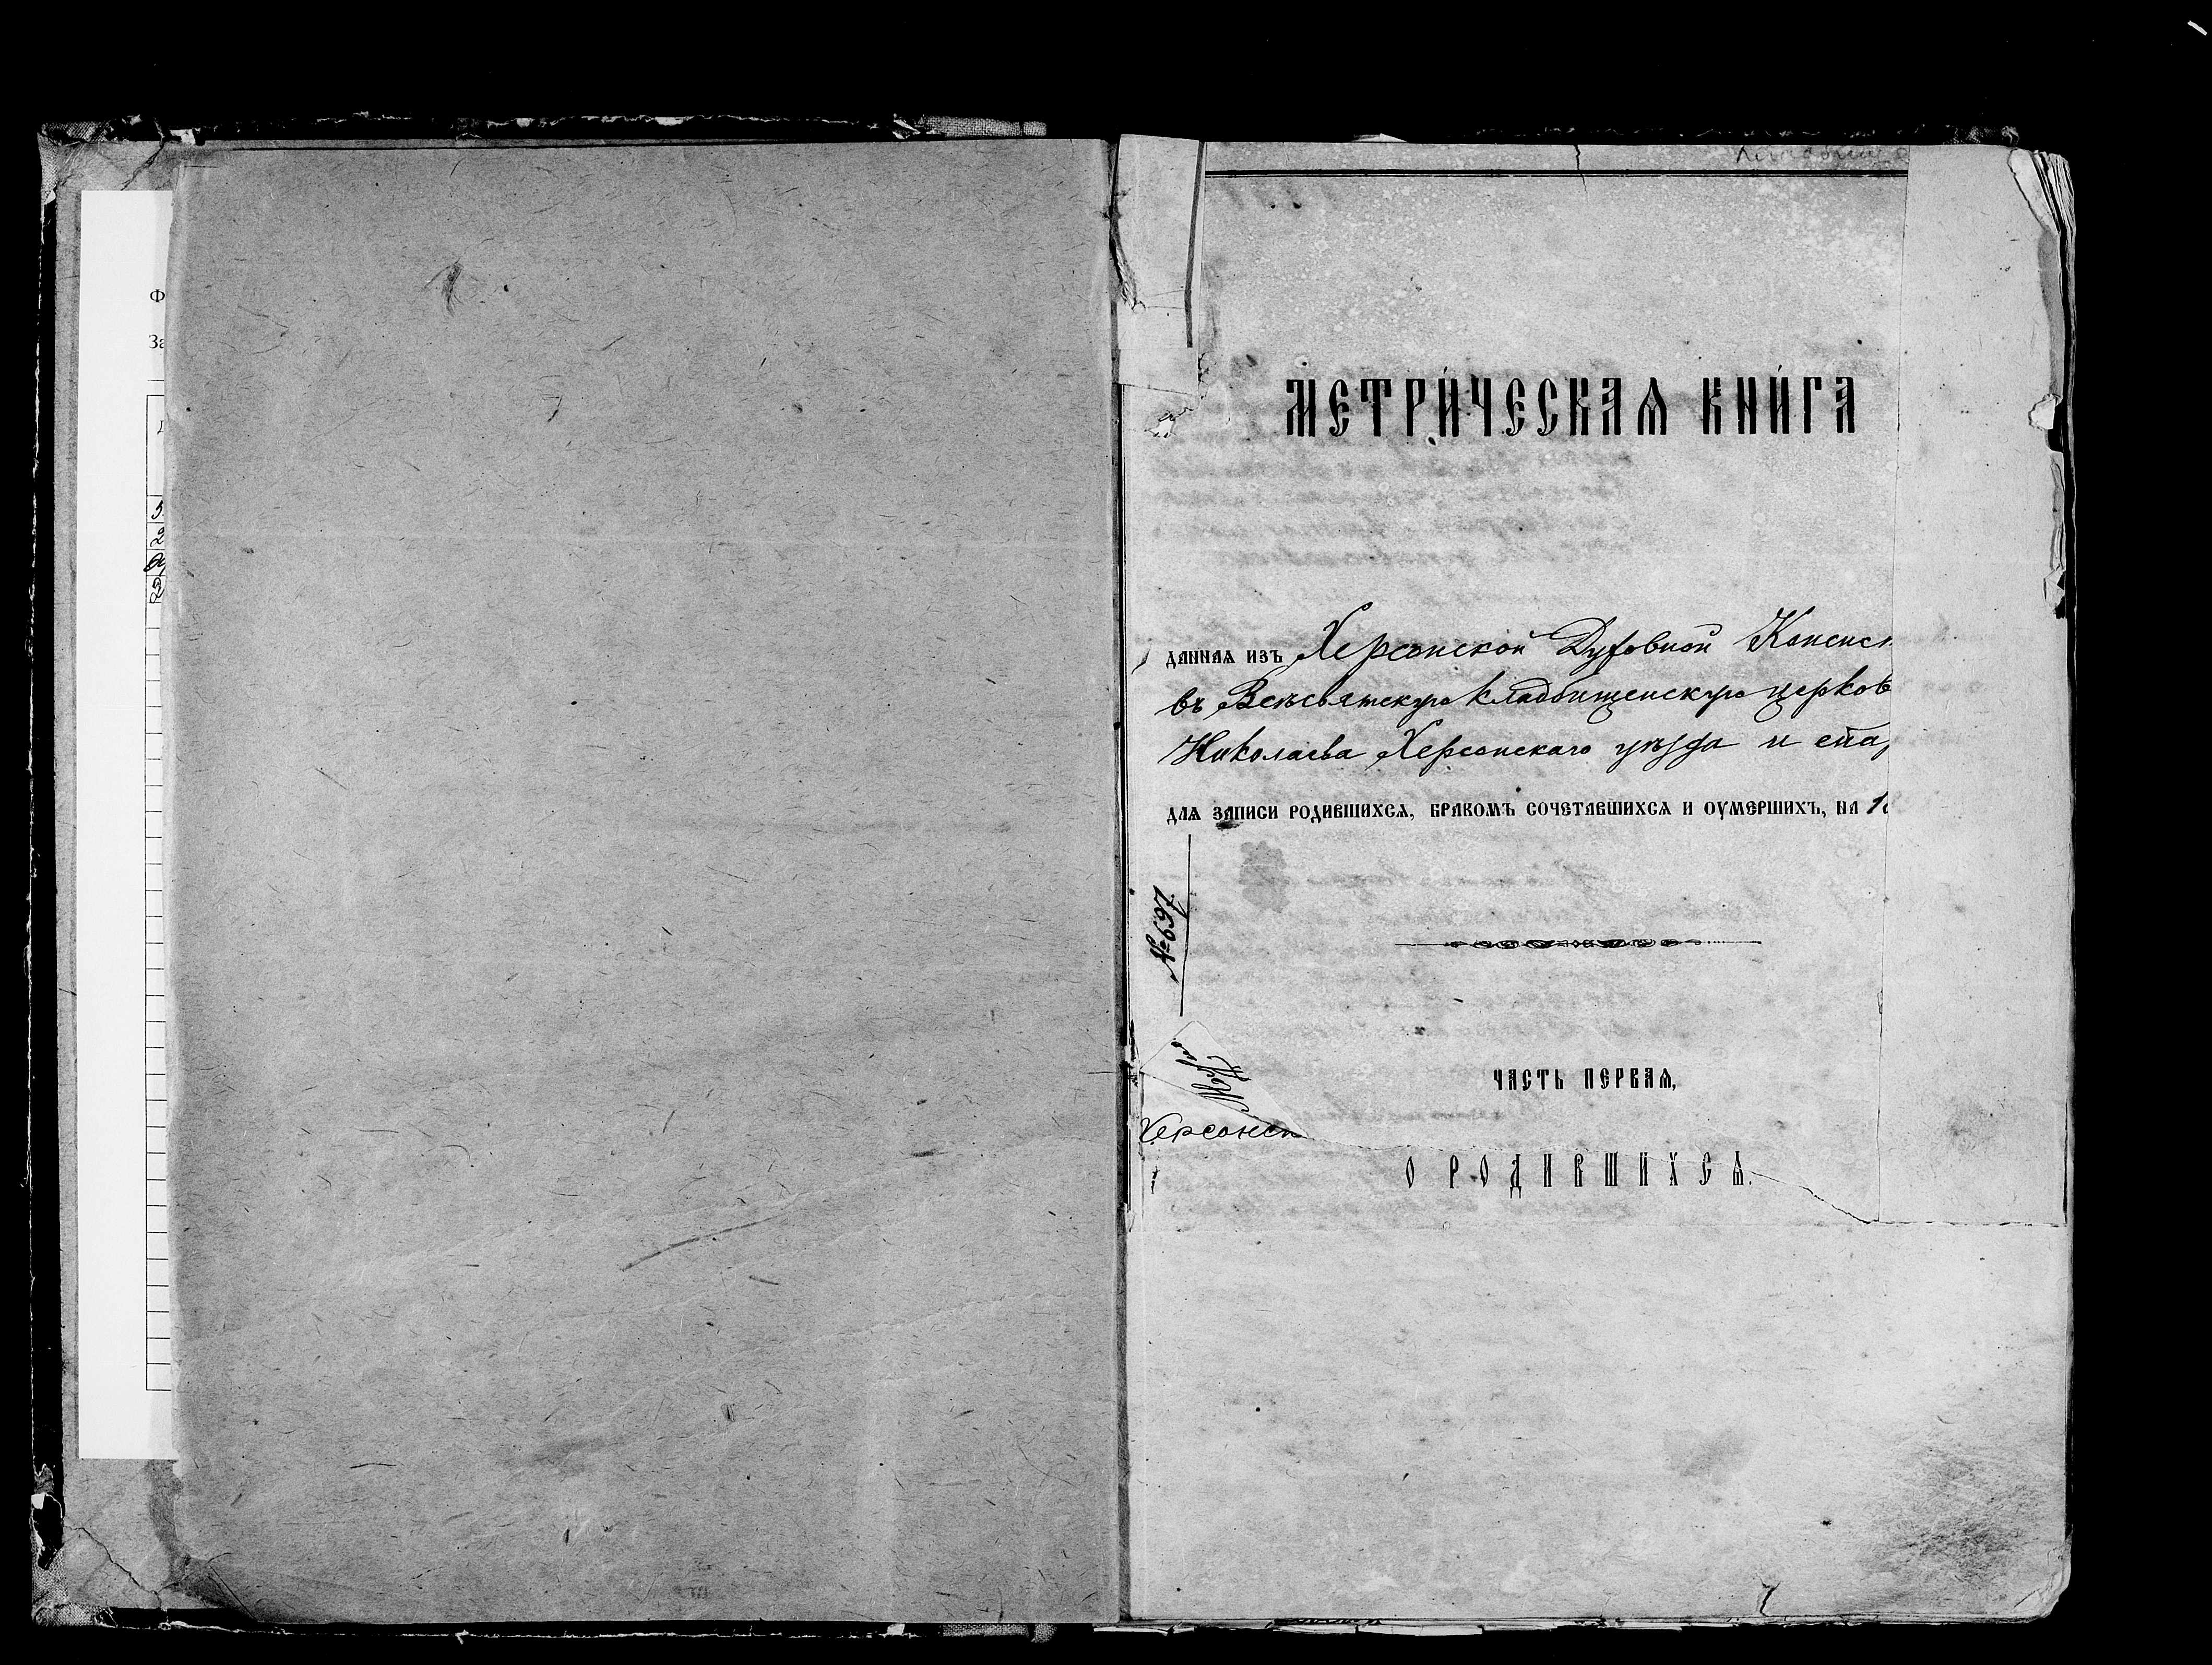 Ф
За
МЕТРИ́ЧЕСКАѦ КНИ́ГА
ДАННАѦ ИЗЪ Херсонской Духовной Консис
въ Всѣсвятскую кладбищенскую церков
Николаева Херсонскаго уѣзда и епа
ДЛѦ ЗАПИСИ РОДИВШИХСѦ, БРАКОМЪ СОЧЕТАВШИХСѦ И ОУМЕРШИХЪ, НА 18
№697
Херсонс
ЧАСТЬ ПЕРВАѦ,
О РОДИВШИХСѦ.